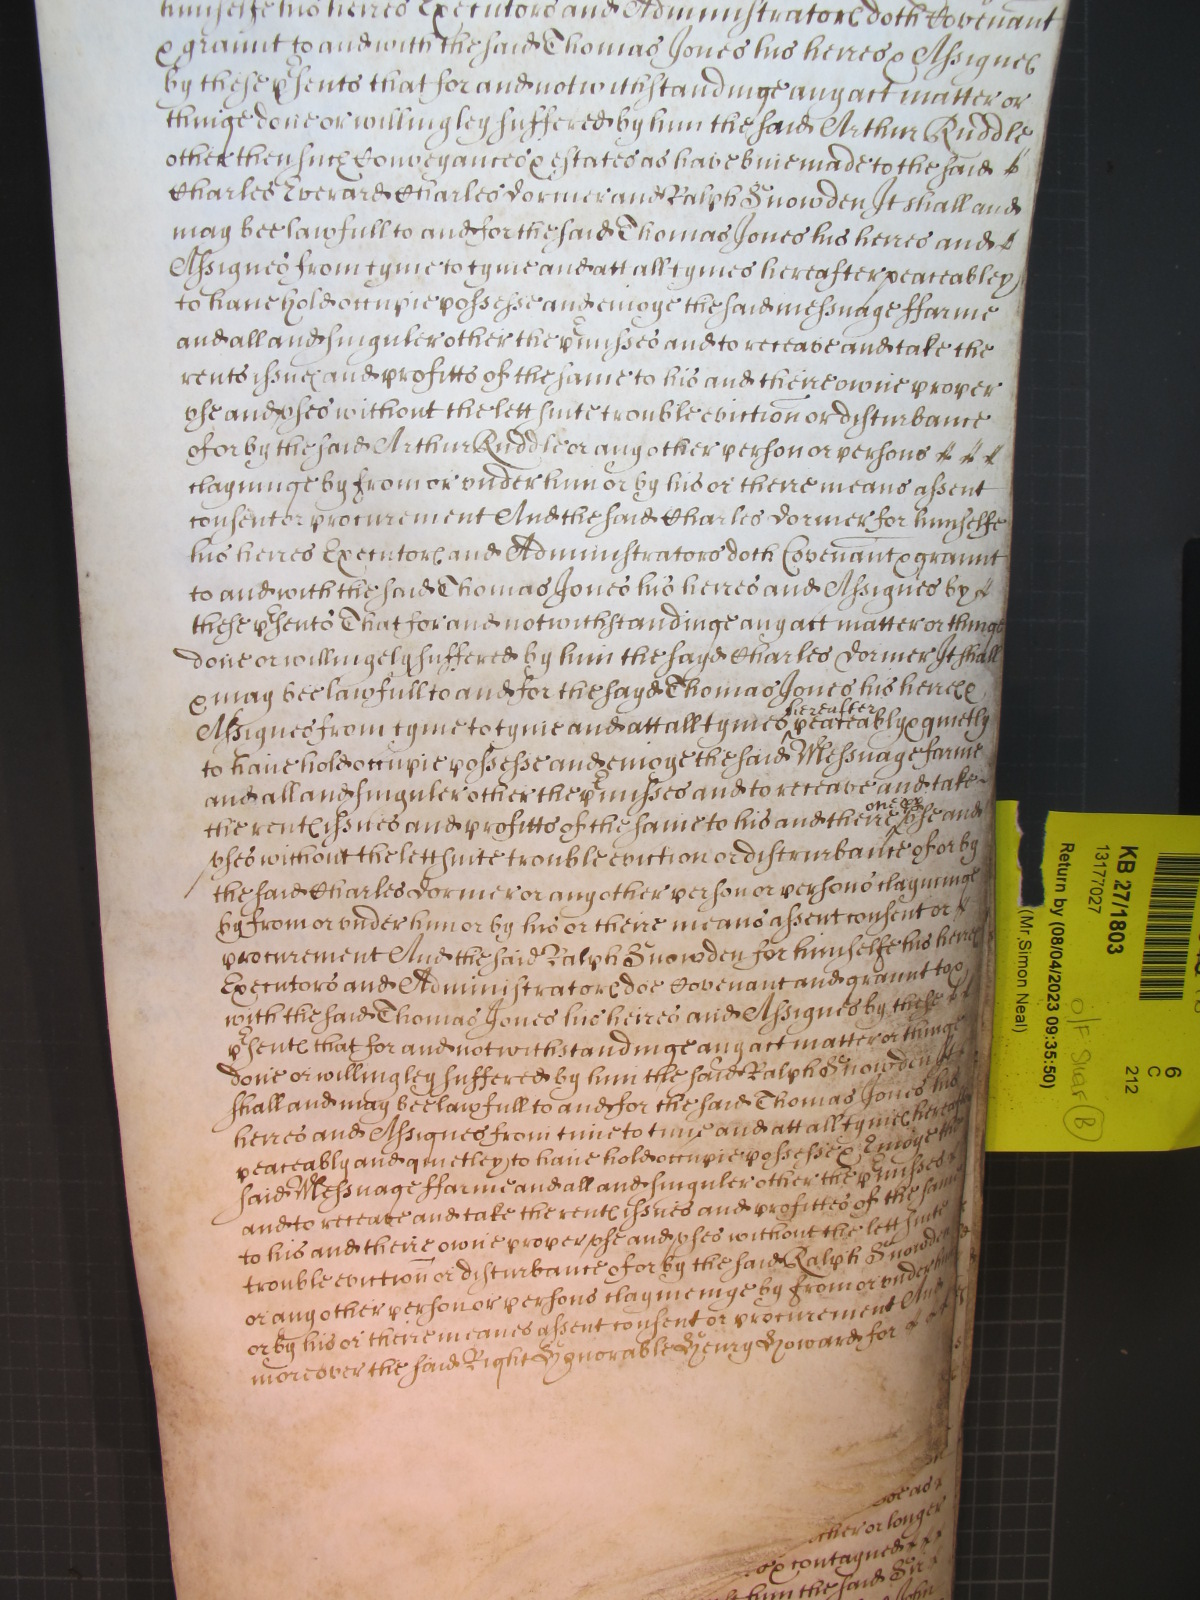 himselfe his heires Executors and Administrators doth Covenant
& graunt to and with the said Thomas Jones his heires & Assignes
by these p̱sents that for and notwithstandinge any act matter or
thinge done or willingley suffered by him the said Arthur Ruddle
other then such Conveyances & estates as have bine made to the said
Charles Everard Charles Dormer and Ralph Snowden It shall and
may bee lawfull to and for the said Thomas Jones his heires and
Assignes from tyme to tyme and att all tymes hereafter peaceabley
to haue hold occupie possesse and enioye the said messuage ffarme
and all and singuler other the p̱misses and to receave and take the
rents issues and profitts of the same to his and theire owne proper
vse and vses without the lett suite trouble eviction or disturbance
of or by the said Arthur Ruddle or any other person or persons
clayminge by from or vnder him or by his or theire means assent
consent or procurement And the said Charles Dormer for himselfe
his heires Executors and Administrators doth Covenant & graunt
to and with the said Thomas Jones his heires and Assignes by
these p̱sents That for and notwithstandinge any act matter or thinge
done or willingely suffered by him the sayd Charles Dormer It shall
& may bee lawfull to and for the sayd Thomas Jones his heires &
hereafter
Assignes from tyme to tyme and att all tymes peaceably & quietly
to haue hold occupie possesse and enioye the said Messuage farme
and all and singuler other the p̱misses and to receave and take
the rents issues and profitts of the same to his and theire vse and
vses without the lett suite trouble eviction or distrurbance of or by
the said Charles Dormer or any other person or persons clayminge
by from or vnder him or by his or theire means assent consent or
procurement And the said Ralph Snowden for himselfe his heires
Executors and Administrators doe Covenant and graunt to &
with the said Thomas Jones his heires and Assignes by these
p̱sents that for and notwithstandinge any act matter or thinge
done or willingley suffered by him the said Ralph Snowden It
shall and may bee lawfull to and for the said Thomas Jones his
heires and Assignes from time to time and att all tymes hereafter
peaceably and quietley to haue hold occupie possesse & Enioye the
said Messuage ffarme and all and singuler other the p̱misses
and to receave and take the rents issues and profittes of the same
to his and theire owne proper vse and vses without the lett suite
trouble eviction or disturbance of or by the said Ralph Snowden
or any other person or persons claymeinge by from or vnder him
or by his or theire meanes assent consent or procurement And
moreover the said Right Honorable Henry Howard for
doe as
ther or longer
contayned
him the said Sir
John
KB 27/1803
13177027
Return by (08/04/2023 09:35:50)
(Mr Simon Neal)
6
C
212
O/F Staf B